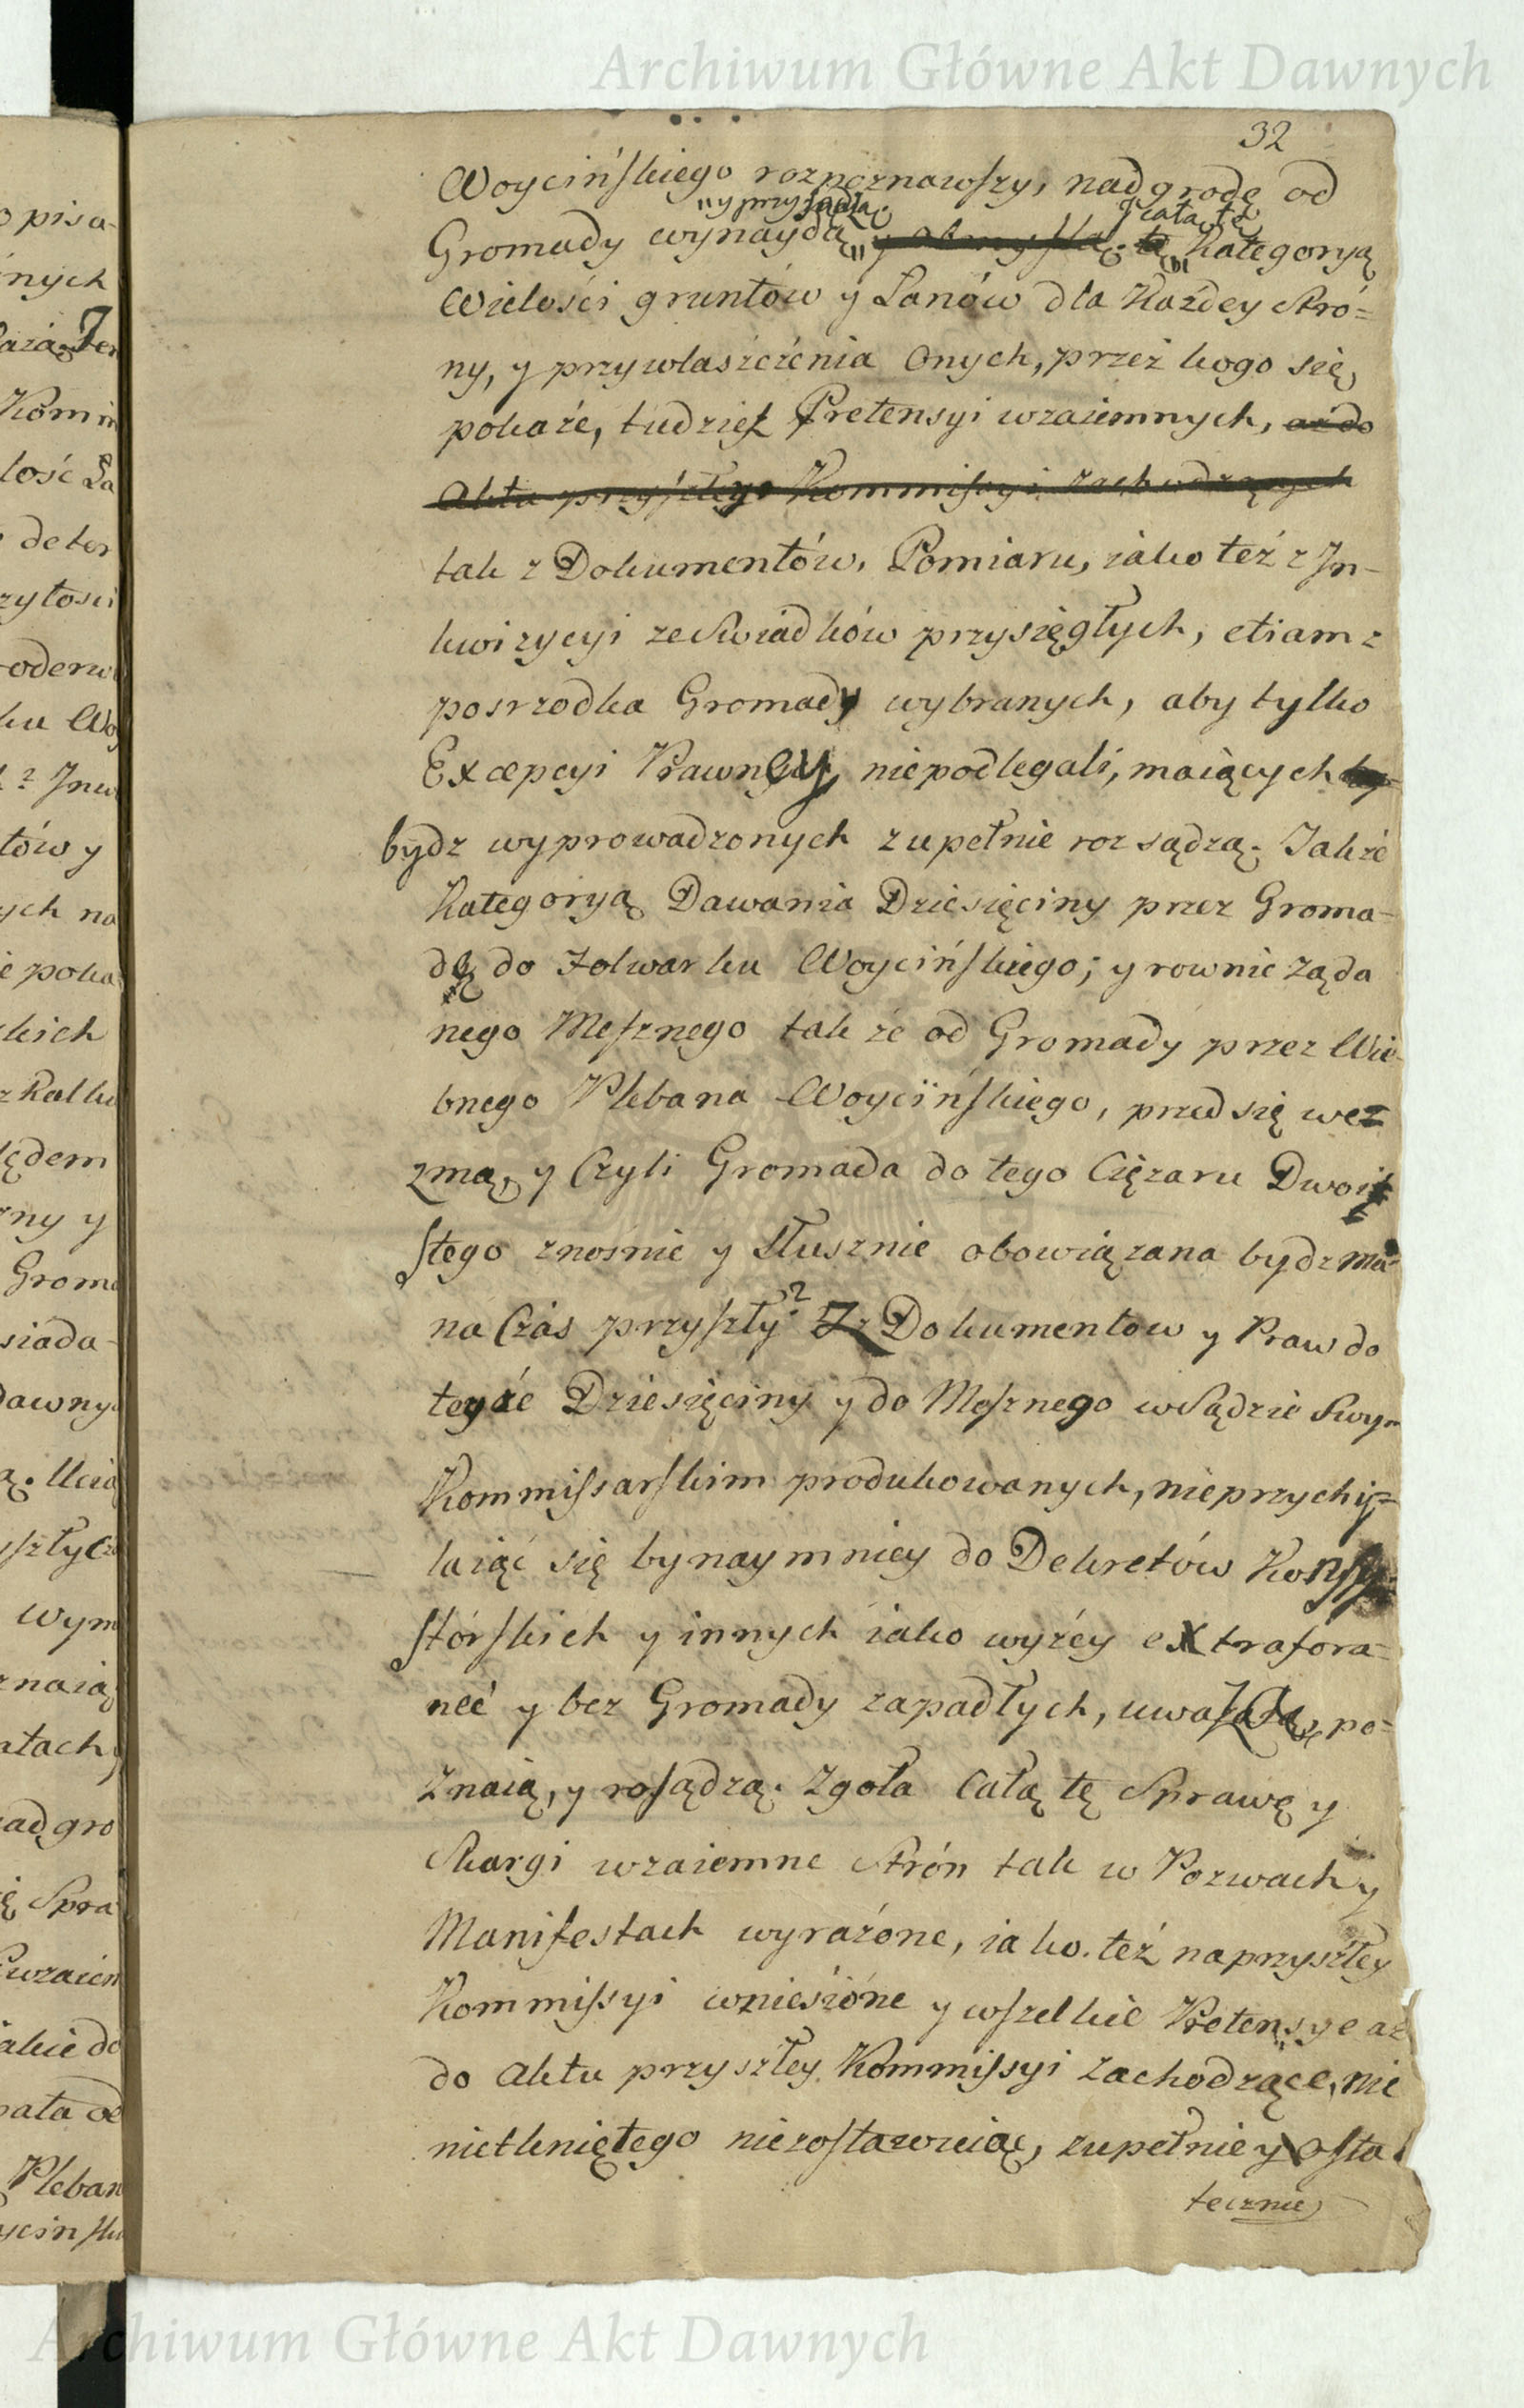 Archiwum Główne Akt Dawnych
32
Woycińskiego rozpoznawszy, nadgrodę od
„y przysądzą.
J całą tę
Gromady wynaydą „ y obmyślą. tę „ Kategoryą
Wielości gruntów y Lanów dla Każdey Stró=
ny, y przywłaszczenia Onych, przez kogo się
pokaże, tudzież Pretensyi wzaiemnych, aż do
Aktu przyszłey Kommissyi zachodzących
tak z Dokumentów, Pomiaru, iako też z In-
kwizycyi ze Swiadków przysięgłych, etiam z
posrzodka Gromady wybranych, aby tylko
Excepcyi Prawney niepodlegali, maiących
bydz wyprowadzonych zupełnie rozsądzą. Jakże
Kategoryą Dawania Dziesięciny przez Groma-
dę do Folwarku Woycińskiego; y rownie żąda
nego Mesznego także od Gromady przez Wie-
bnego Plebana Woycińskiego, przedsię wez
zmą, y Czyli Gromada do tego Ciężaru Dwoi
stego znośnie y słusznie obowiązana bydz ma
na Czas przyszły? Z Dokumentow y Praw do
teyże Dziesięciny y do Mesznego w Sądzie Swym
Kommissarskim produkowanych, nieprzychy=
laiąc się bynaymniey do Dekretów Konsy=
stórskich y innych iako wyżey extrafora=
neé y bez Gromady zapadłych, uważą, po=
znaią, y rosądzą. Zgoła Całą tę Sprawę y
Skargi wzaiemne Strón tak w Pozwach y
Manifestach wyrażóne, iako też na przyszłey
Kommissyi wnieśióne y wszelkie Pretensye aż
do Aktu przyszłey Kommissyi zachodzące, nic
nietkniętego niezostawuiąc, zupełnie y osta
tecznie
Archiwum Główne Akt Dawnych